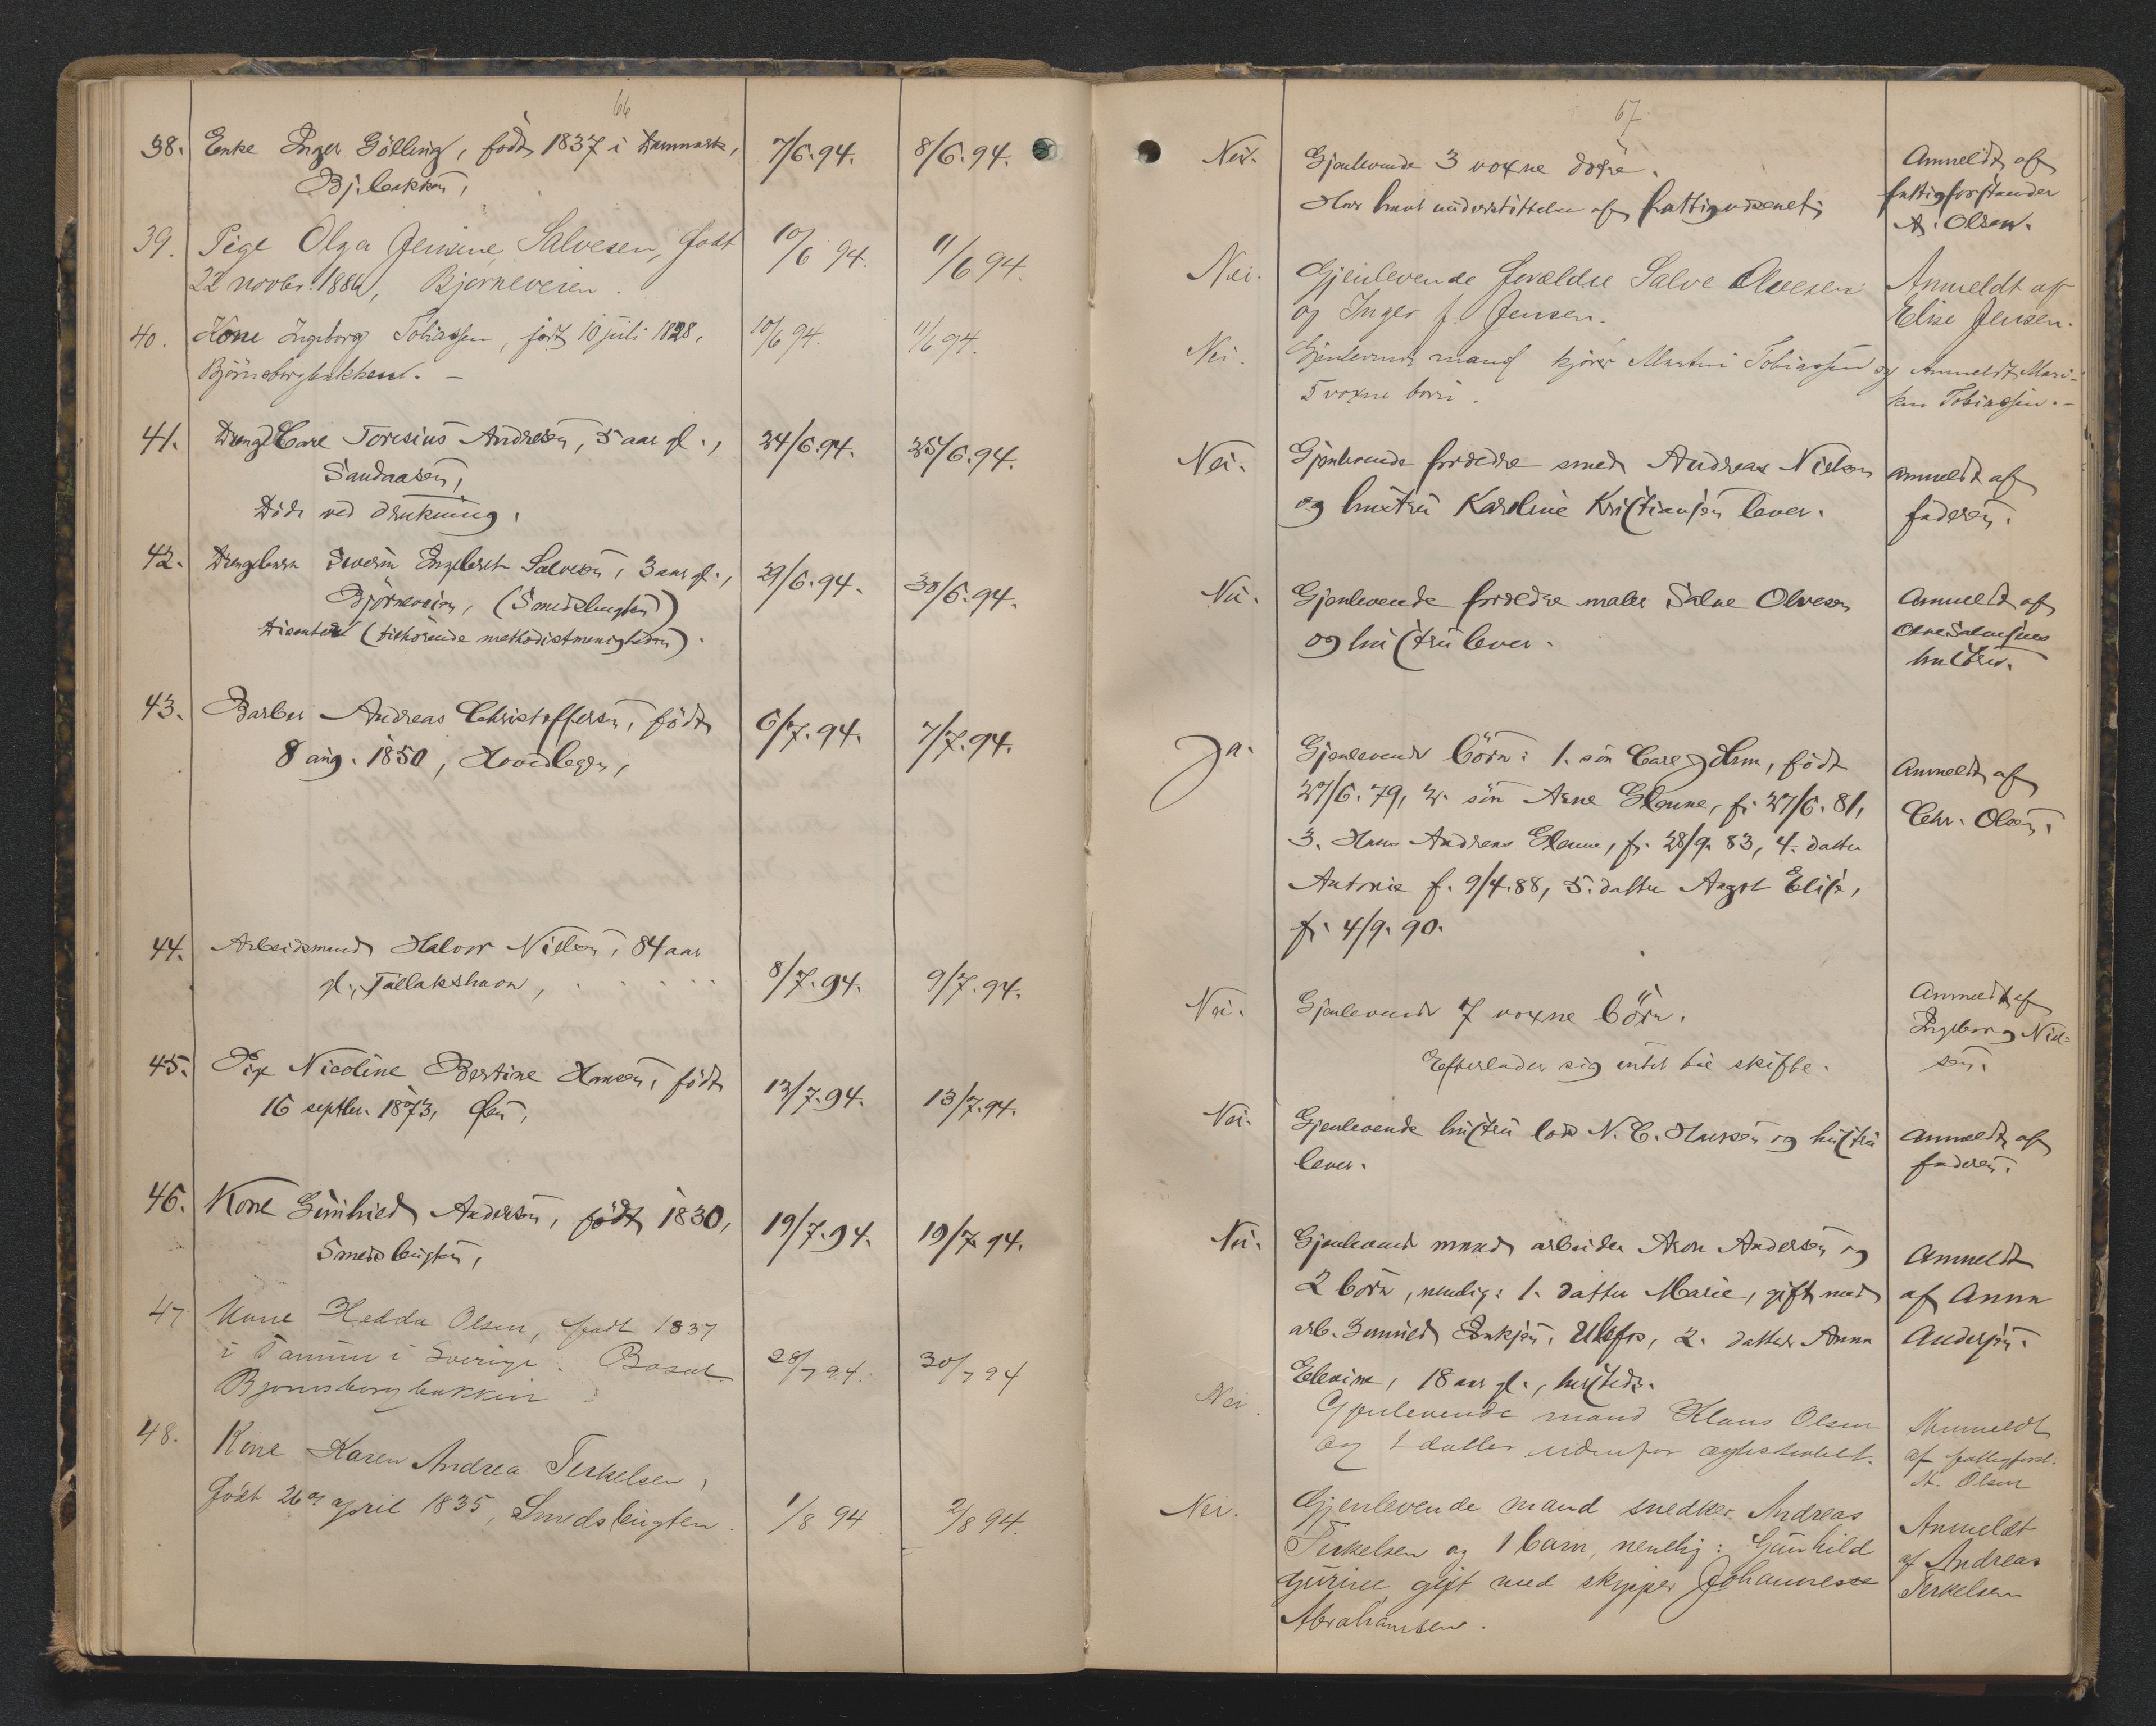 66
38. Enke Inger Gölling, född 1837 i Danmark, 7/6.94. 8/6.94.
Bj.bakken,
39. Pige Olga Jensine Salvesen, født 10/6 94. 11/6 94.
22 novbr. 1884, Bjørneveien.
40. Kone Ingeborg Tobiassen, født 10 juli 1828, 10/6 94. 11/6 94.
Björnsbergbakken. –
41. Dreng Carl Toresius Andresen, 5 aar gl., 24/6.94. 25/6.94.
Sandaasen,
Död ved drukning.
42. Drengebarn Severin Ingebret Salvesen, 3 aar gl., 29/6.94. 30/6.94.
Björneveien, (Smedsbugten)
Disenter (tilhörende methodistmenigheden).
43. Barber Andreas Christoffersen, född 6/7.94. 7/7.94.
8 aug. 1850,
44. Arbeidsmand Halvor Nielsen, 84 aar 8/7.94. 9/7.94.
gl., Tallakshavn,
45. Pige Nicoline Bertine Hansen, född 12/7.94. 13/7.94.
16 septbr. 1873,
46. Kone Gunhild Andersen, född 1830, 19/7.94. 19/7.94.
Smedsbugten,
47 Kone Hedda Olsen, født 1837
i Tanum i Sverige. Bosat 28/7 94. 30/7 94
Bjornsbergbakken
48. Kone Karen Andrea Terkelsen,
født 26de april 1835, Smedsbugten. 1/8 94 2/8 94.
67.
Nei. Gjenlevende 3 voxne døtre. Anmeldt af
Har havt understöttelse af fattigvæsenet; fattigforstander
A. Olsen.
Nei. Gjenlevende forældre Salve Olvesen Anmeldt af
og Inger f. Jensen. Elise Jensen.
Nei. Gjenlevende mand kjører Martin Tobiassen og Anmeldt Mari-
5 voxne børn. Tobiassen. –
Nei. Gjenlevende forældre smed Andreas Nielsen anmeldt af
og hustru Karoline Kristiansen lever. faderen.
Nei. Gjenlevende forældre maler Salve Olvesen Anmeldt af
og hustru lever. hustru.
Ja. Gjenlevende börn: 1. sön Carl Johan, född Anmeldt af
27/6.79, 2. sön Arne, f. 27/6.81, Chr. Olsen.
3. Hans Andreas, f. 28/9.83, 4. datter
Antonie f. 9/4.88, 5. datter Aagot Elise,
f. 4/9.90.
Nei. Gjenlevende 7 voxne börn. Anmeldt af
Ingeborg Niel-
Efterlader sig intet til skifte. sen.
Nei. Gjenlevende lods N. C. Hansen og hustru anmeldt af
lever. faderen.
Nei. Gjenlevende mand arbeider Aron Andersen og Anmeldt
2 börn, nemlig: 1. datter Marie, gift med af Anna
arb., 2. datter Anna Andersen.
18 aar gl., hersteds.
Nei. Gjenlevende mand Klaus Olsen Anmeldt
og 1 datter udenfor ægteskabet. af fattigforst.
A. Olsen
Nei. Gjenlevende mand snedker Andreas Anmeldt
Terkelsen og 1 barn, nemlig: Gunhild af Andreas
Gurine, gift med skipper Johannes Terkelsen
Abrahamsen.